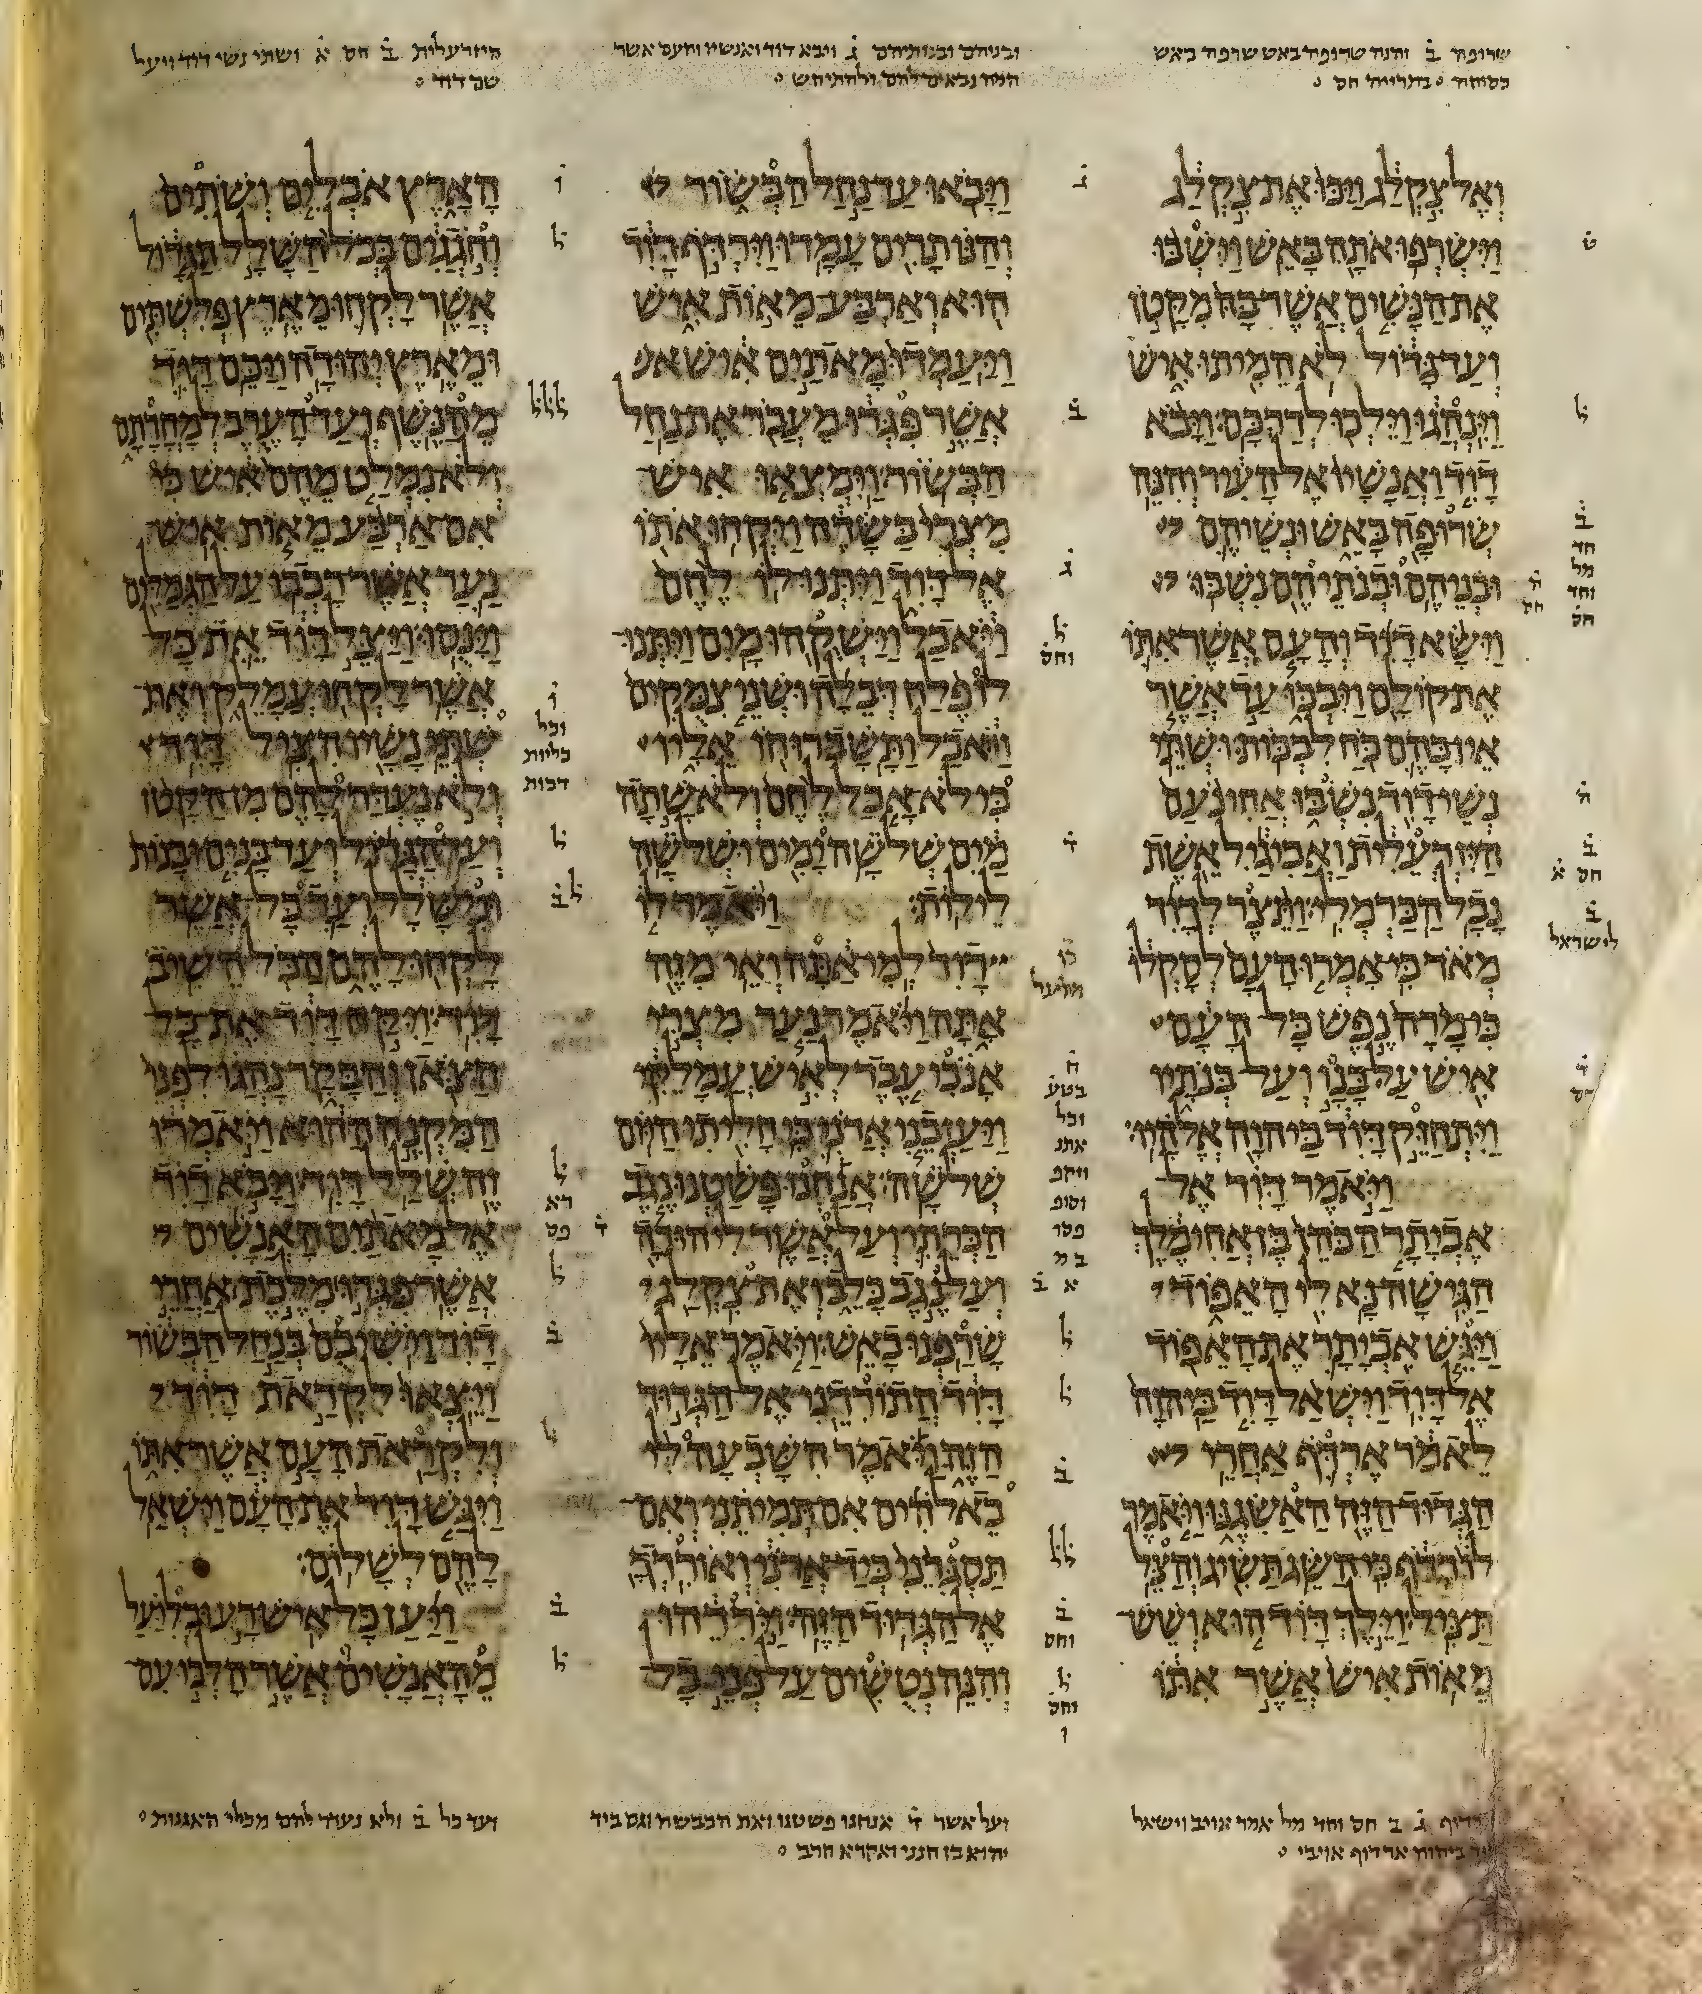 שרופה ב והנה שרופה באש שרפה באש
כסוחה בתרייה חס
ובניהם ובנותיהם ג ויבא דוד ואנשיו והעם אשר
היזרעלית ב חס א ושתי נשי דוד ויעל
שם דוד
ואל צקלג ויכו את צקלג
וישרפו אתה באש וישבו
את הנשים אשר בה מקטן
ועד גדול לא המיתו איש
וינהגו וילכו לדרכם ויבא
דויד ואנשיו אל העיר והנה
שרופה באש ונשיהם
ובניהם ובנתיהם נשבו
וישא דויד והעם אשר אתו
את קולם ויבכו עד אשר
אין בהם כח לבכות ושתי
נשי דויד נשבו אחינעם
היזרעלית ואביגיל אשת
נבל הכרמלי ותצר לדויד
מאד כי אמרו העם לסקלו
כי מרה נפש כל העם
איש על בנו ועל בנתיו
ויתחזק דויד ביהוה אלהיו
ויאמר דויד אל
אביתר הכהן בן אחימלך
הגישה נא לי האפוד
ויגש אביתר את האפוד
אל דויד וישאל דויד ביהוה
לאמר ארדף אחרי
הגדוד הזה האשגנו ויאמר
לו רדף כי השג תשיג והצל
תציל וילך דויד הוא ושש
מאות איש אשר אתו
ויבאו עד נחל הבשור
והנותרים עמדו וירדף דויד
הוא וארבע מאות איש
ויעמדו מאתים איש
אשר פגרו מעבר את נחל
הבשור וימצאו איש
מצרי בשדה ויקחו אתו
אל דויד ויתנו לו לחם
ויאכל וישקהו מים ויתנו
לו פלח דבלה ושני צמקים
ויאכל ותשב רוחו אליו
כי לא אכל לחם ולא שתה
מים שלשה ימים ושלשה
לילות ויאמר לו
דויד למי אתה ואי מזה
אתה ויאמר נער מצרי
אנכי עבד לאיש עמלקי
ויעזבני אדני כי חליתי היום
שלשה אנחנו פשטנו נגב
הכרתי ועל אשר ליהודה
ועל נגב כלב ואת צקלג
שרפנו באש ויאמר אליו
דויד התורדני אל הגדוד
הזה ויאמר השבעה לי
באלהים אם תמיתני ואם
תסגרני ביד אדני ואורדך
אל הגדוד הזה וירדהו
והנה נטשים על פני כל
הארץ אכלים ושתים
וחגגים בכל השלל הגדול
אשר לקחו מארץ פלשתים
ומארץ יהודה ויכם דוד
מהנשף ועד הערב למחרתם
ולא נמלט מהם איש כי
אם ארבע מאות איש
נער אשר רכבו על הגמלים
וינסו ויצל דויד את כל
אשר לקחו עמלק ואת
שתי נשיו הציל דויד
ולא נעדר להם מן הקטן
ועד הגדול ועד בנים ובנות
ומשלל ועד כל אשר
לקחו להם הכל השיב
דויד ויקח דויד את כל
הצאן והבקר נהגו לפני
המקנה ההוא ויאמרו
זה שלל דויד ויבא דויד
אל מאתים האנשים
אשר פגרו מלכת אחרי
דויד וישיבם בנחל הבשור
ויצאו לקראת דויד
ולקראת העם אשר אתו
ויגש דויד את העם וישאל
להם לשלום
ויען כל איש רע ובליעל
מהאנשים אשר הלכו עם
ג ב חס וחד מל אמר אויב וישאל
ביהוה ארדוף אויבי
ועל אשר ד אנחנו פשטנו ואת הכבשה וגם ביד
יהוא בן חנני
ועד כל ב ולא נעדר להם מכלי האגנות